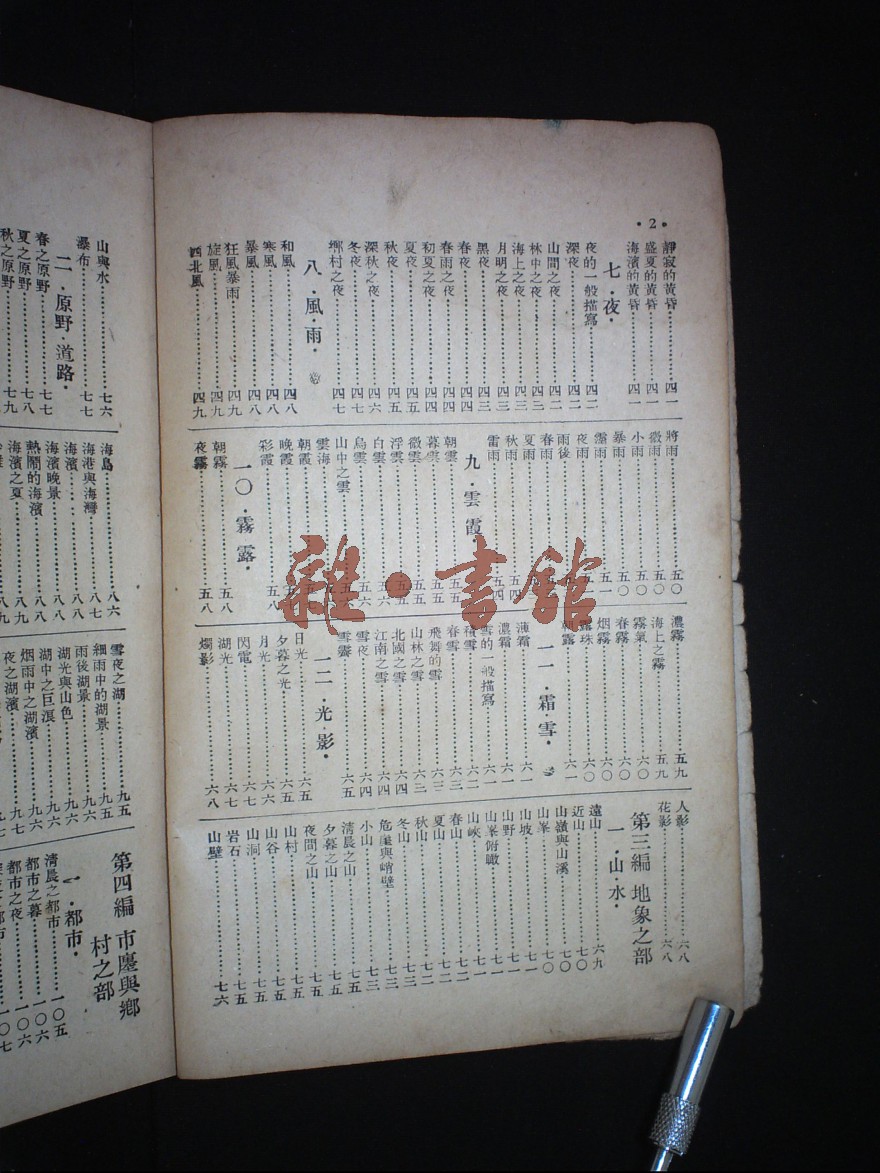 ·2·
靜寂的黃昏……四一
盛夏的黃昏……四一
海濱的黃昏……四一
七·夜·
夜的一般描寫……四二
深夜……四二
山間之夜……四二
林中之夜……四三
海上之夜……四三
月明之夜……四三
黑夜……四三
春夜……四四
春雨之夜……四四
初夏之夜……四四
夏夜……四五
秋夜……四五
深秋之夜……四六
冬夜……四七
鄉村之夜……四七
八·風·雨·
和風……四八
寒風……四八
暴風……四八
狂風暴雨……四九
旋風……四九
西北風……四九
將雨……五〇
微雨……五〇
小雨……五〇
暴雨……五〇
霪雨……五一
夜雨……五一
雨後
春雨
夏雨
秋雨……五四
雷雨……五四
九·雲 霞
朝雲
暮雲……五五
微雲……五五
浮雲……五五
白雲……五六
烏雲……五六
山中之雲
雲海
朝霞
晚霞
彩霞……五八
一〇·霧 露·
朝霧……五八
夜霧……五八
濃霧……五九
海上之霧……五九
霧氣……六〇
春霧……六〇
烟霧……六〇
珠……六〇
朝露……六一
一一·霜·雪·
薄霜……六一
濃霜……六一
雪的一般描寫……六一
積雪……六二
春雪……六二
飛舞的雪……六三
山林之雪……六三
北國之雪……六四
江南之雪……六四
雪夜……六四
雪霽……六五
一二·光·影·
日光……六五
夕暮之光……六五
月光……六六
閃電……六七
湖光……六七
燭影……六八
人影……六八
花影……六八
第三編 地象之部
一·山水·
遠山……六九
近山……七〇
山嶺與山溪……七〇
山峯……七〇
山坡……七一
山野……七一
山峯俯瞰……七一
山峽……七一
春山……七二
夏山……七二
秋山……七二
冬山……七三
危崖與峭壁……七三
小山……七三
清晨之山……七五
夕暮之山……七五
夜間之山……七五
山村……七五
山谷……七五
山洞……七五
岩石……七五
山壁……七六
山與水……七六
瀑布……七七
二·原野·道路·
春之原野……七七
夏之原野……七八
秋之原野……七九
海島……八六
海港與海灣……八七
海濱……八八
海濱晚景……八八
熱鬧的海濱……八八
海濱之夏……八九
雪夜之湖……九五
細雨中的湖景……九五
雨後湖景……九六
湖光與山色……九六
湖中之巨浪……九六
烟雨中之湖濱……九六
夜之湖濱……九七
第四編 市廛與鄉村之部
一·都市·
清晨之都市……一〇五
都市之暮……一〇六
都市之夜……一〇六
雜·書館